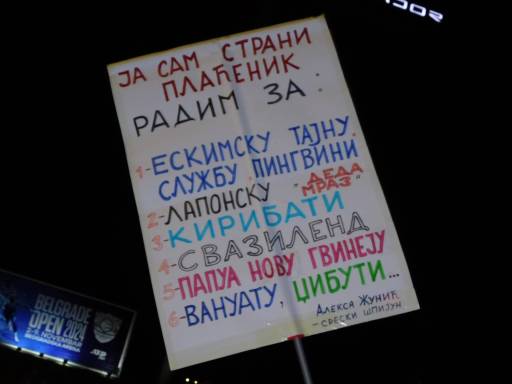 ЈА САМ СТРАНИ
ПЛАЋЕНИК
РАДИМ ЗА:
1-ЕСКИМСКУ ТАЈНУ
СЛУЖБУ „ПИНГВИНИ"
2-ЛАПОНСКУ "ДЕДА
МРАЗ"
3-КИРИБАТИ
4-СВАЗИЛЕНД
5-ПАПУА НОВУ ГВИНЕЈУ
6-ВАНУАТУ, ЏИБУТИ...
АЛЕКСА ЖУНИЋ
-СРЕСКИ ШПИЈУН
BELGRADE
OPEN 2024